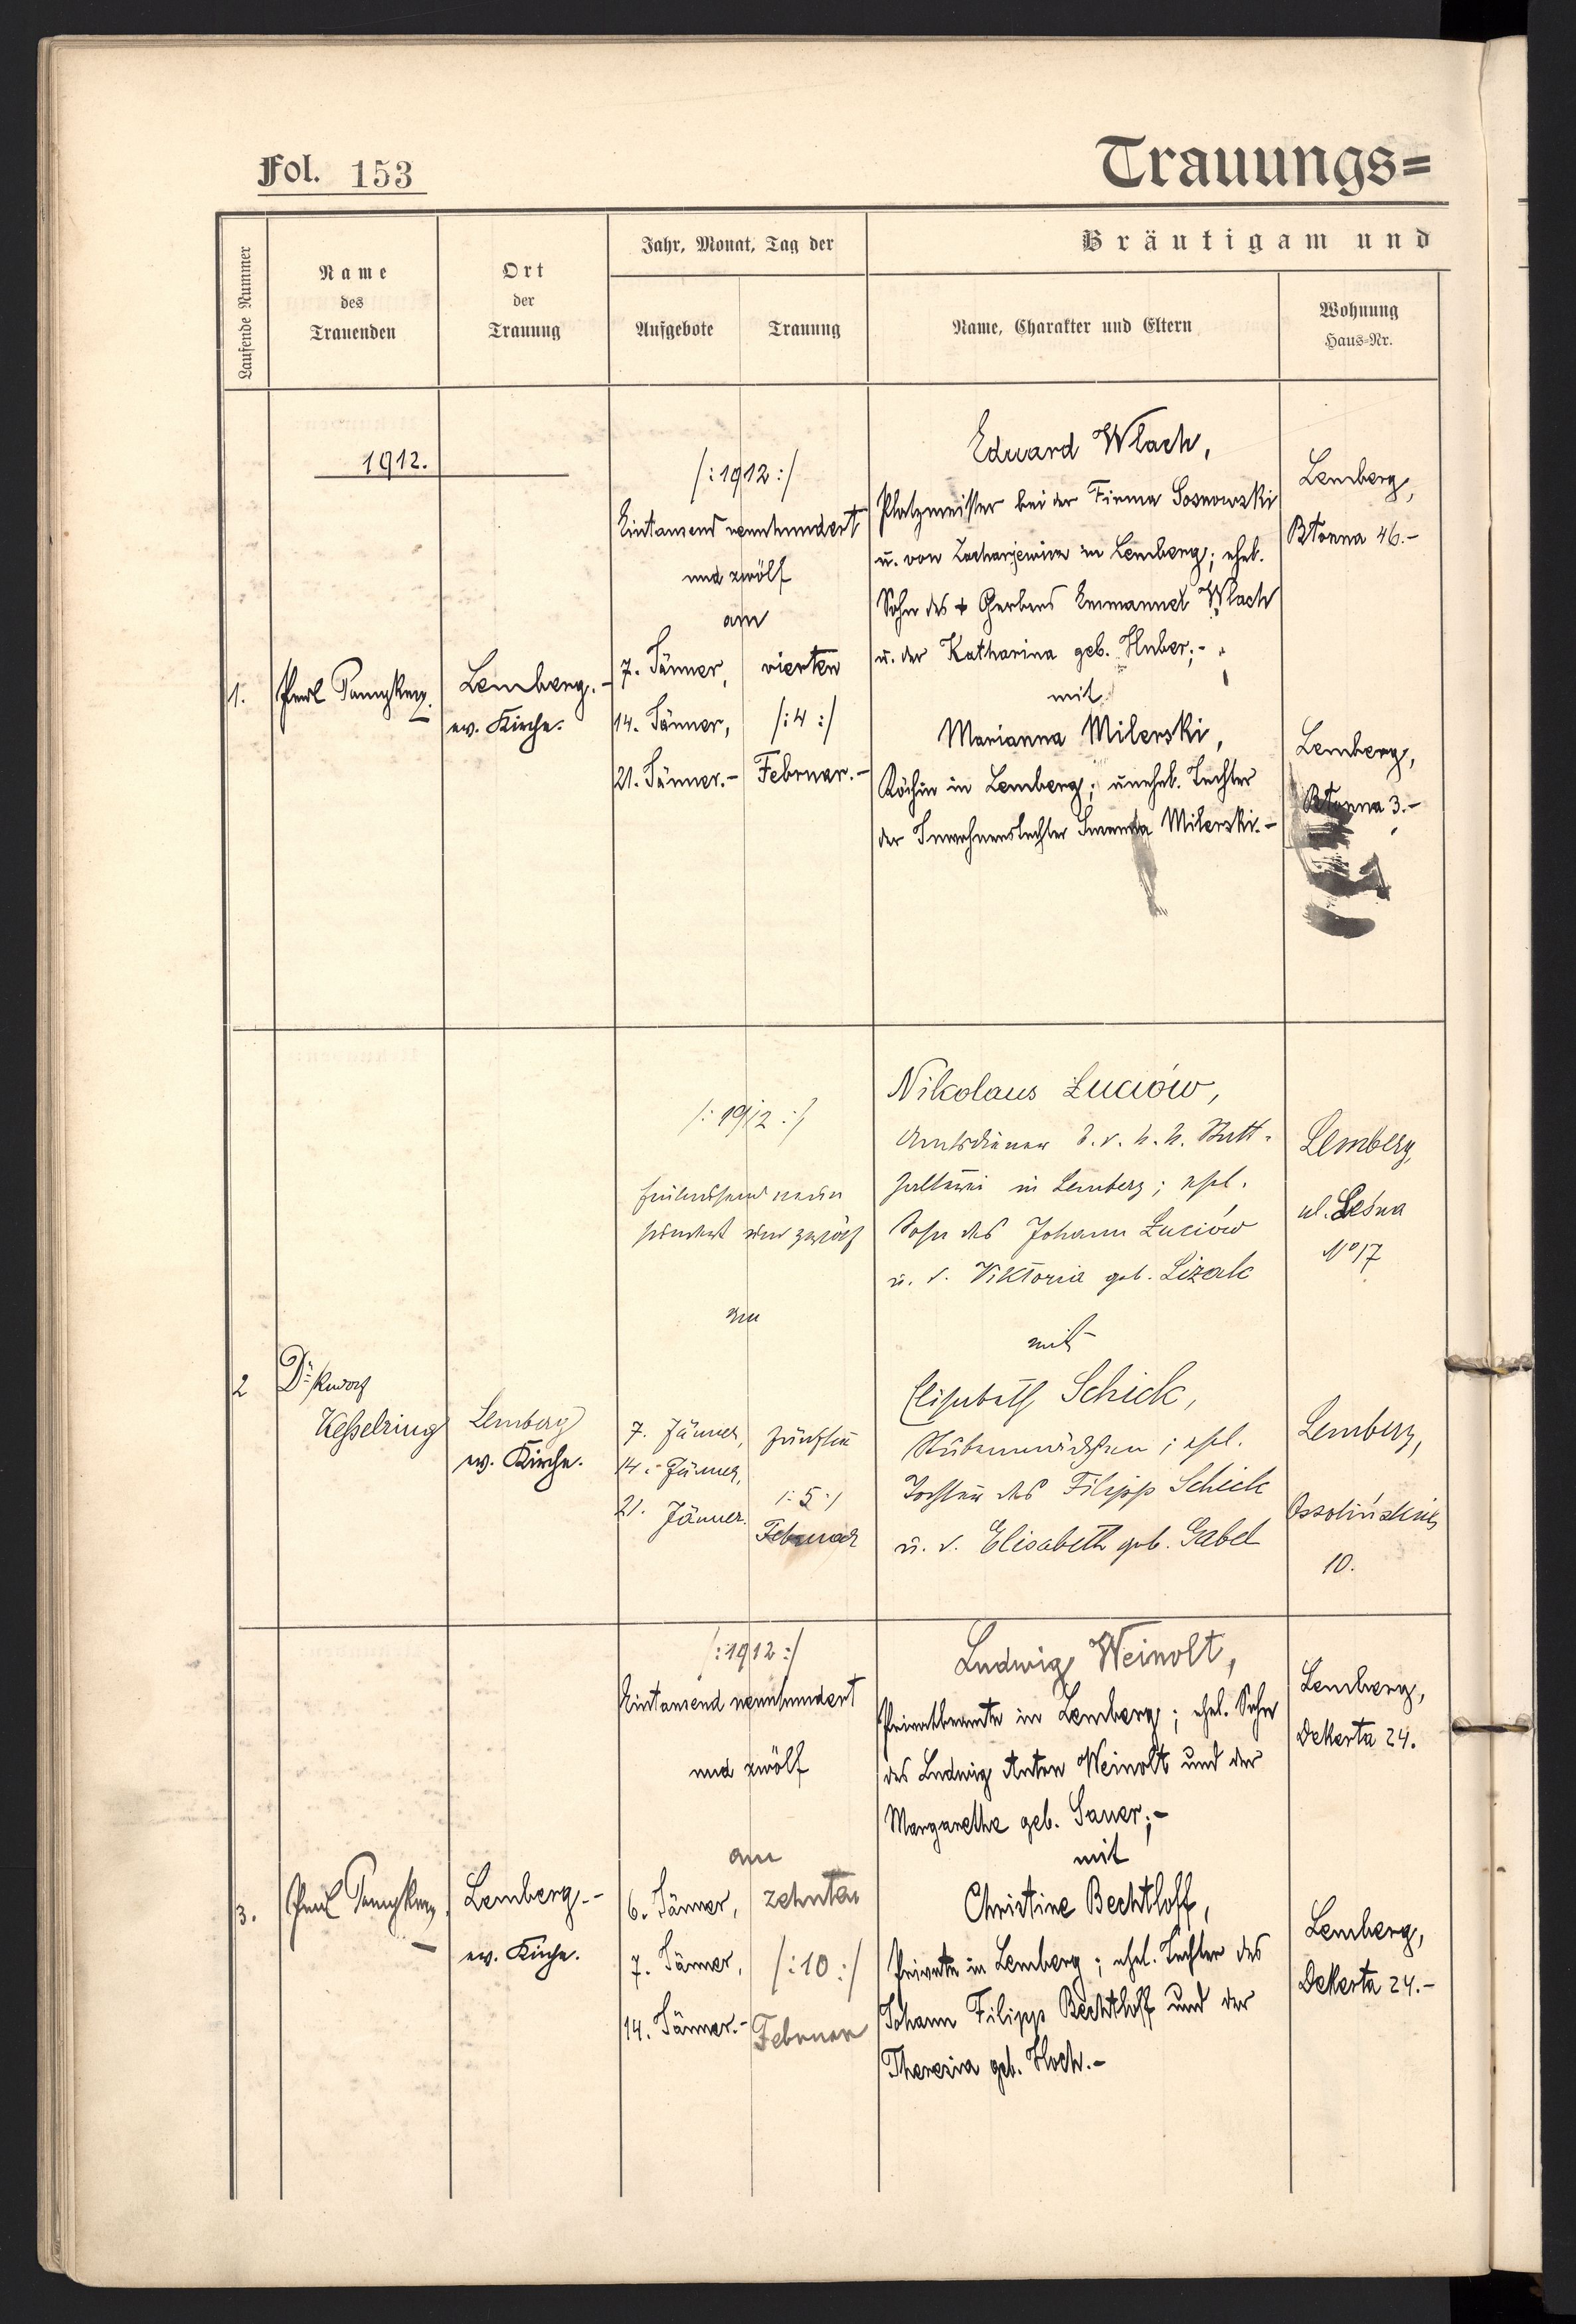 Fol. 153
Trauungs=
Laufende Nummer
Name
des
Trauenden
Ort
der
Trauung
Jahr, Monat, Tag der
Aufgebote
Trauung
Bräutigam und
Name, Charakter und Eltern
Wohnung
Haus=Nr.
1912.
1.
Lemberg.-
ev. Kirche.
/:1912:/
Eintausend neunhundert
und zwölf
am
7. Jänner,
14. Jänner,
21. Jänner.-
vierten
/:4:/
Februar.-
Eduard Wlach,
Platzmeister bei der Firma Sosnowski
u. von Zacharjewicz in Lemberg; ehel.
Sohn des + Gerbers Emmanuel Wlach
u. der Katharina geb. Huber;-
mit
Marianna Milerski,
Köchin in Lemberg; unehel. Tochter
der Inwohnerstochter Milerski.-
Lemberg,
Błonna 46.-
Lemberg,
Błonna 3.-
2
Dr. Rudolf
Kesselring
Lemberg
ev. Kirche.
/:1912:/
Eintausend neun
hundert und zwölf
am
7. Jänner,
14. Jänner,
21. Jänner.
fünften
/:5:/
Februar
Nikolaus Łuciów,
Amtsdiener d. k. k. Statt-
halterei in Lemberg; ehel.
Sohn des Johann Łuciów
u. d. Viktoria geb. Lizak
mit
Elisabeth Schick,
Stubenmädchen; ehel.
Tochter des Filipp Schick
u. d. Elisabeth geb. Gabel
Lemberg,
ul. Leśna
No 17
Lemberg,
Ossolińskich
10.
3.
Lemberg.-
ev. Kirche.
/:1912:/
Eintausend neunhundert
und zwölf
am
6. Jänner,
7. Jänner,
14. Jänner.-
zehnten
/:10:/
Februar
Ludwig Weinolt,
Privatbeamte in Lemberg; ehel. Sohn
des Ludwig Anton Weinolt und der
Margarethe geb. Sauer;-
mit
Christine Bechtloff,
Private in Lemberg; ehel. Tochter des
Johann Filipp Bechtloff und der
Theresia geb. Hoch.-
Lemberg,
Dekerta 24.
Lemberg,
Dekerta 24.-